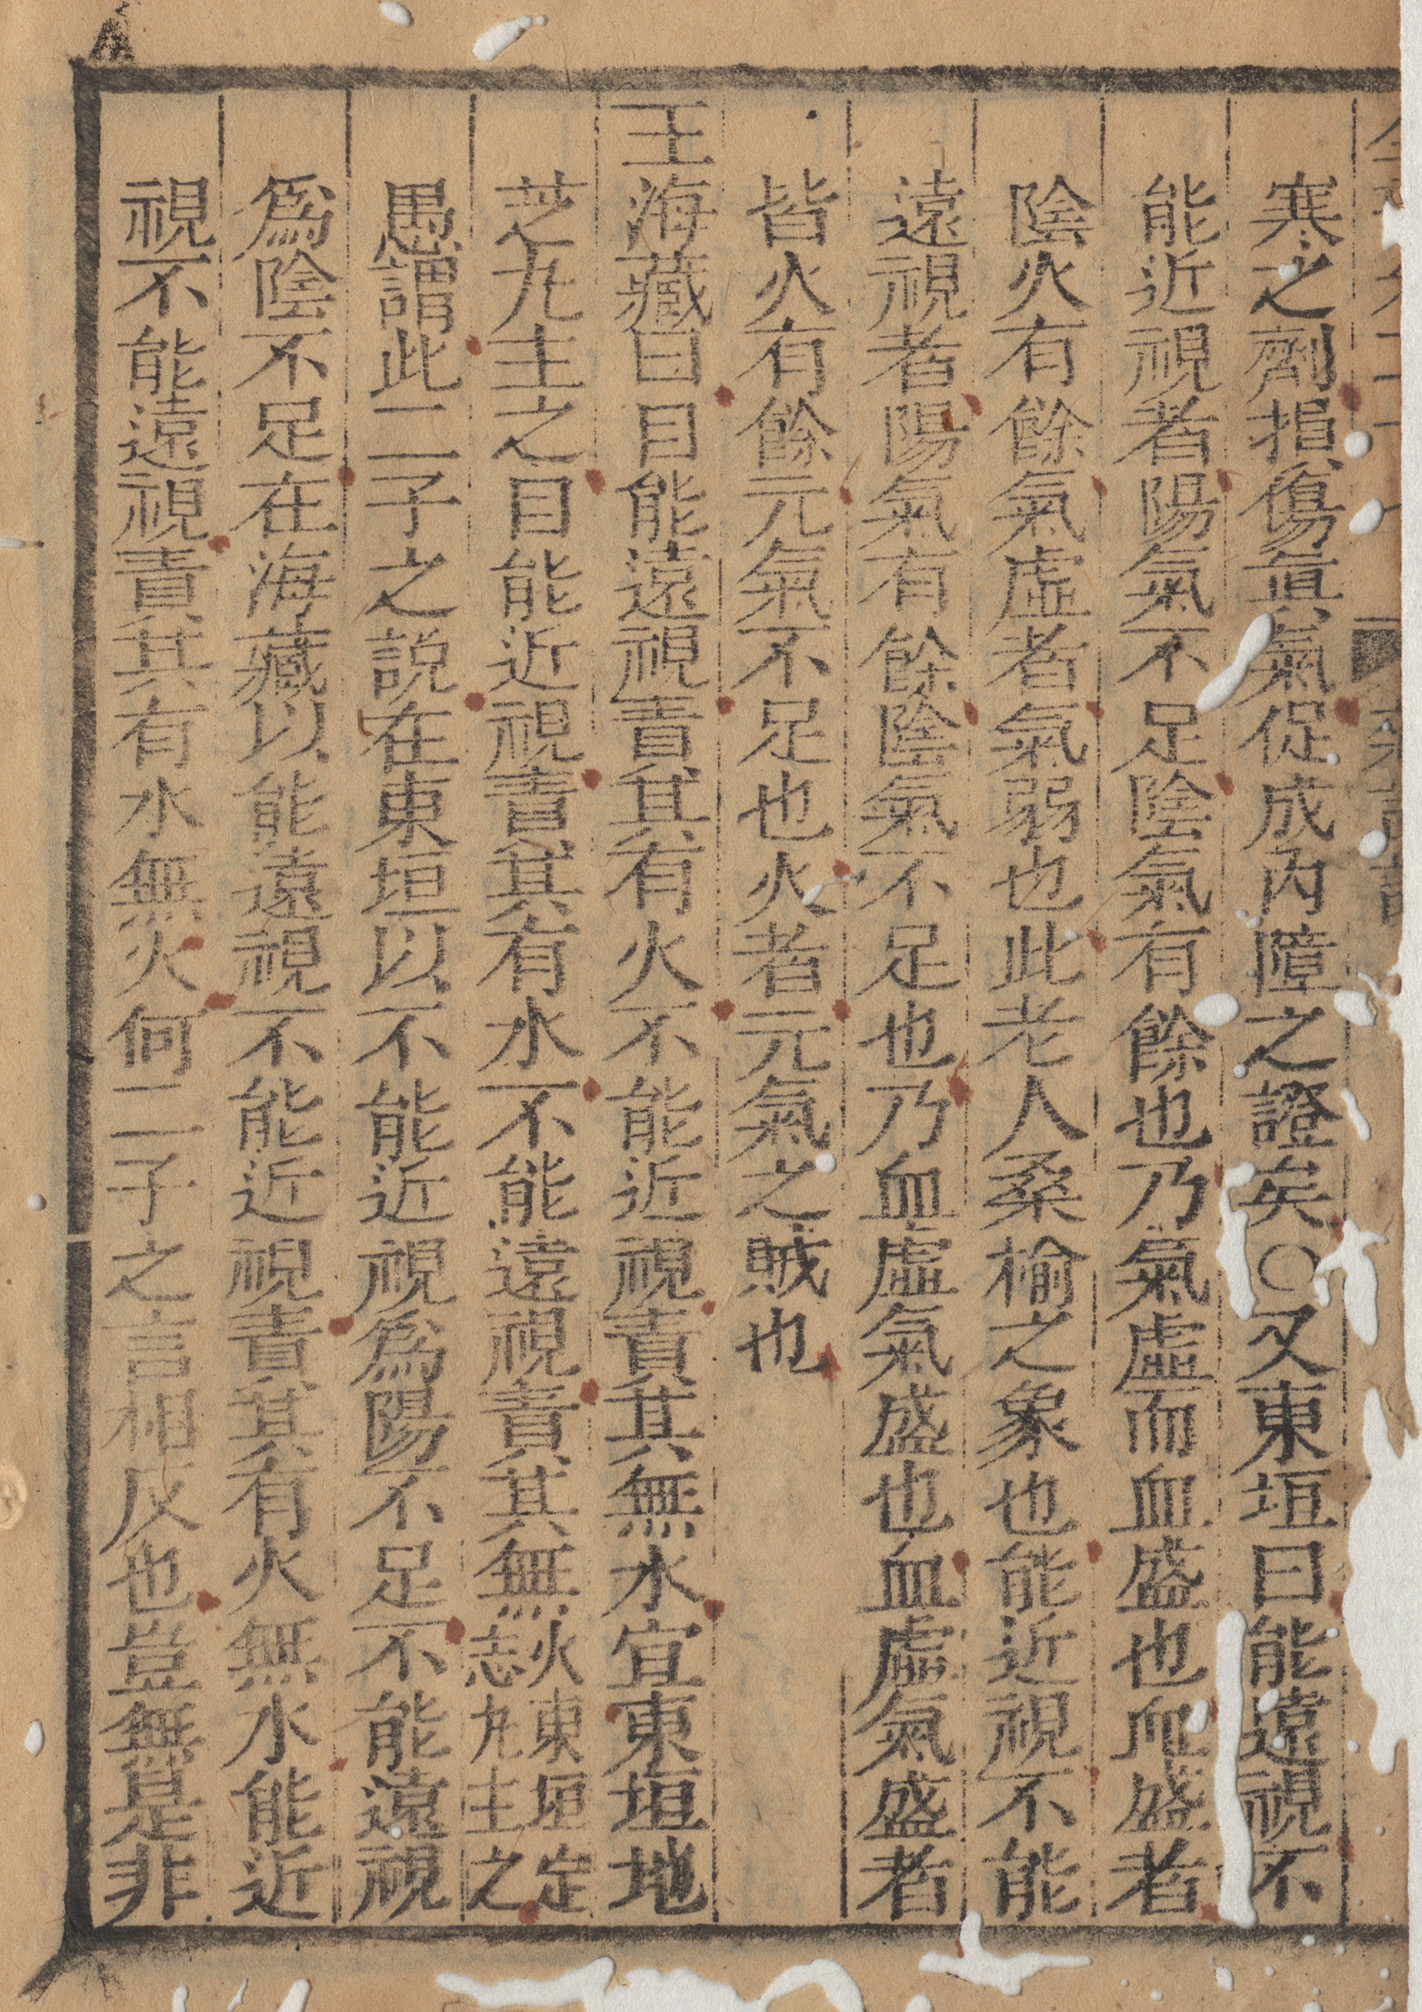 寒之劑損傷眞氣促成内障之證矣○又東垣曰能遠視不
能近視者陽氣不足陰氣有餘也乃氣虛而血盛也血盛者
陰火有餘氣虛者氣弱也此老人桑榆之象也能近視不能
遠視者陽氣有餘陰氣不足也乃血虛氣盛也血虛氣盛者
皆火有餘元氣不足也火者元氣之賊也
王海藏曰目能遠視責其有火不能近視責其無水宜東垣地
芝丸主之目能近視責其有水不能遠視責其無火東垣定志丸主之
愚謂此二子之說在東垣以不能近視爲陽不足不能遠視
爲陰不足在海藏以能遠視不能近視責其有火無水能近
視不能遠視責其有水無火何二子之言相反也豈無是非